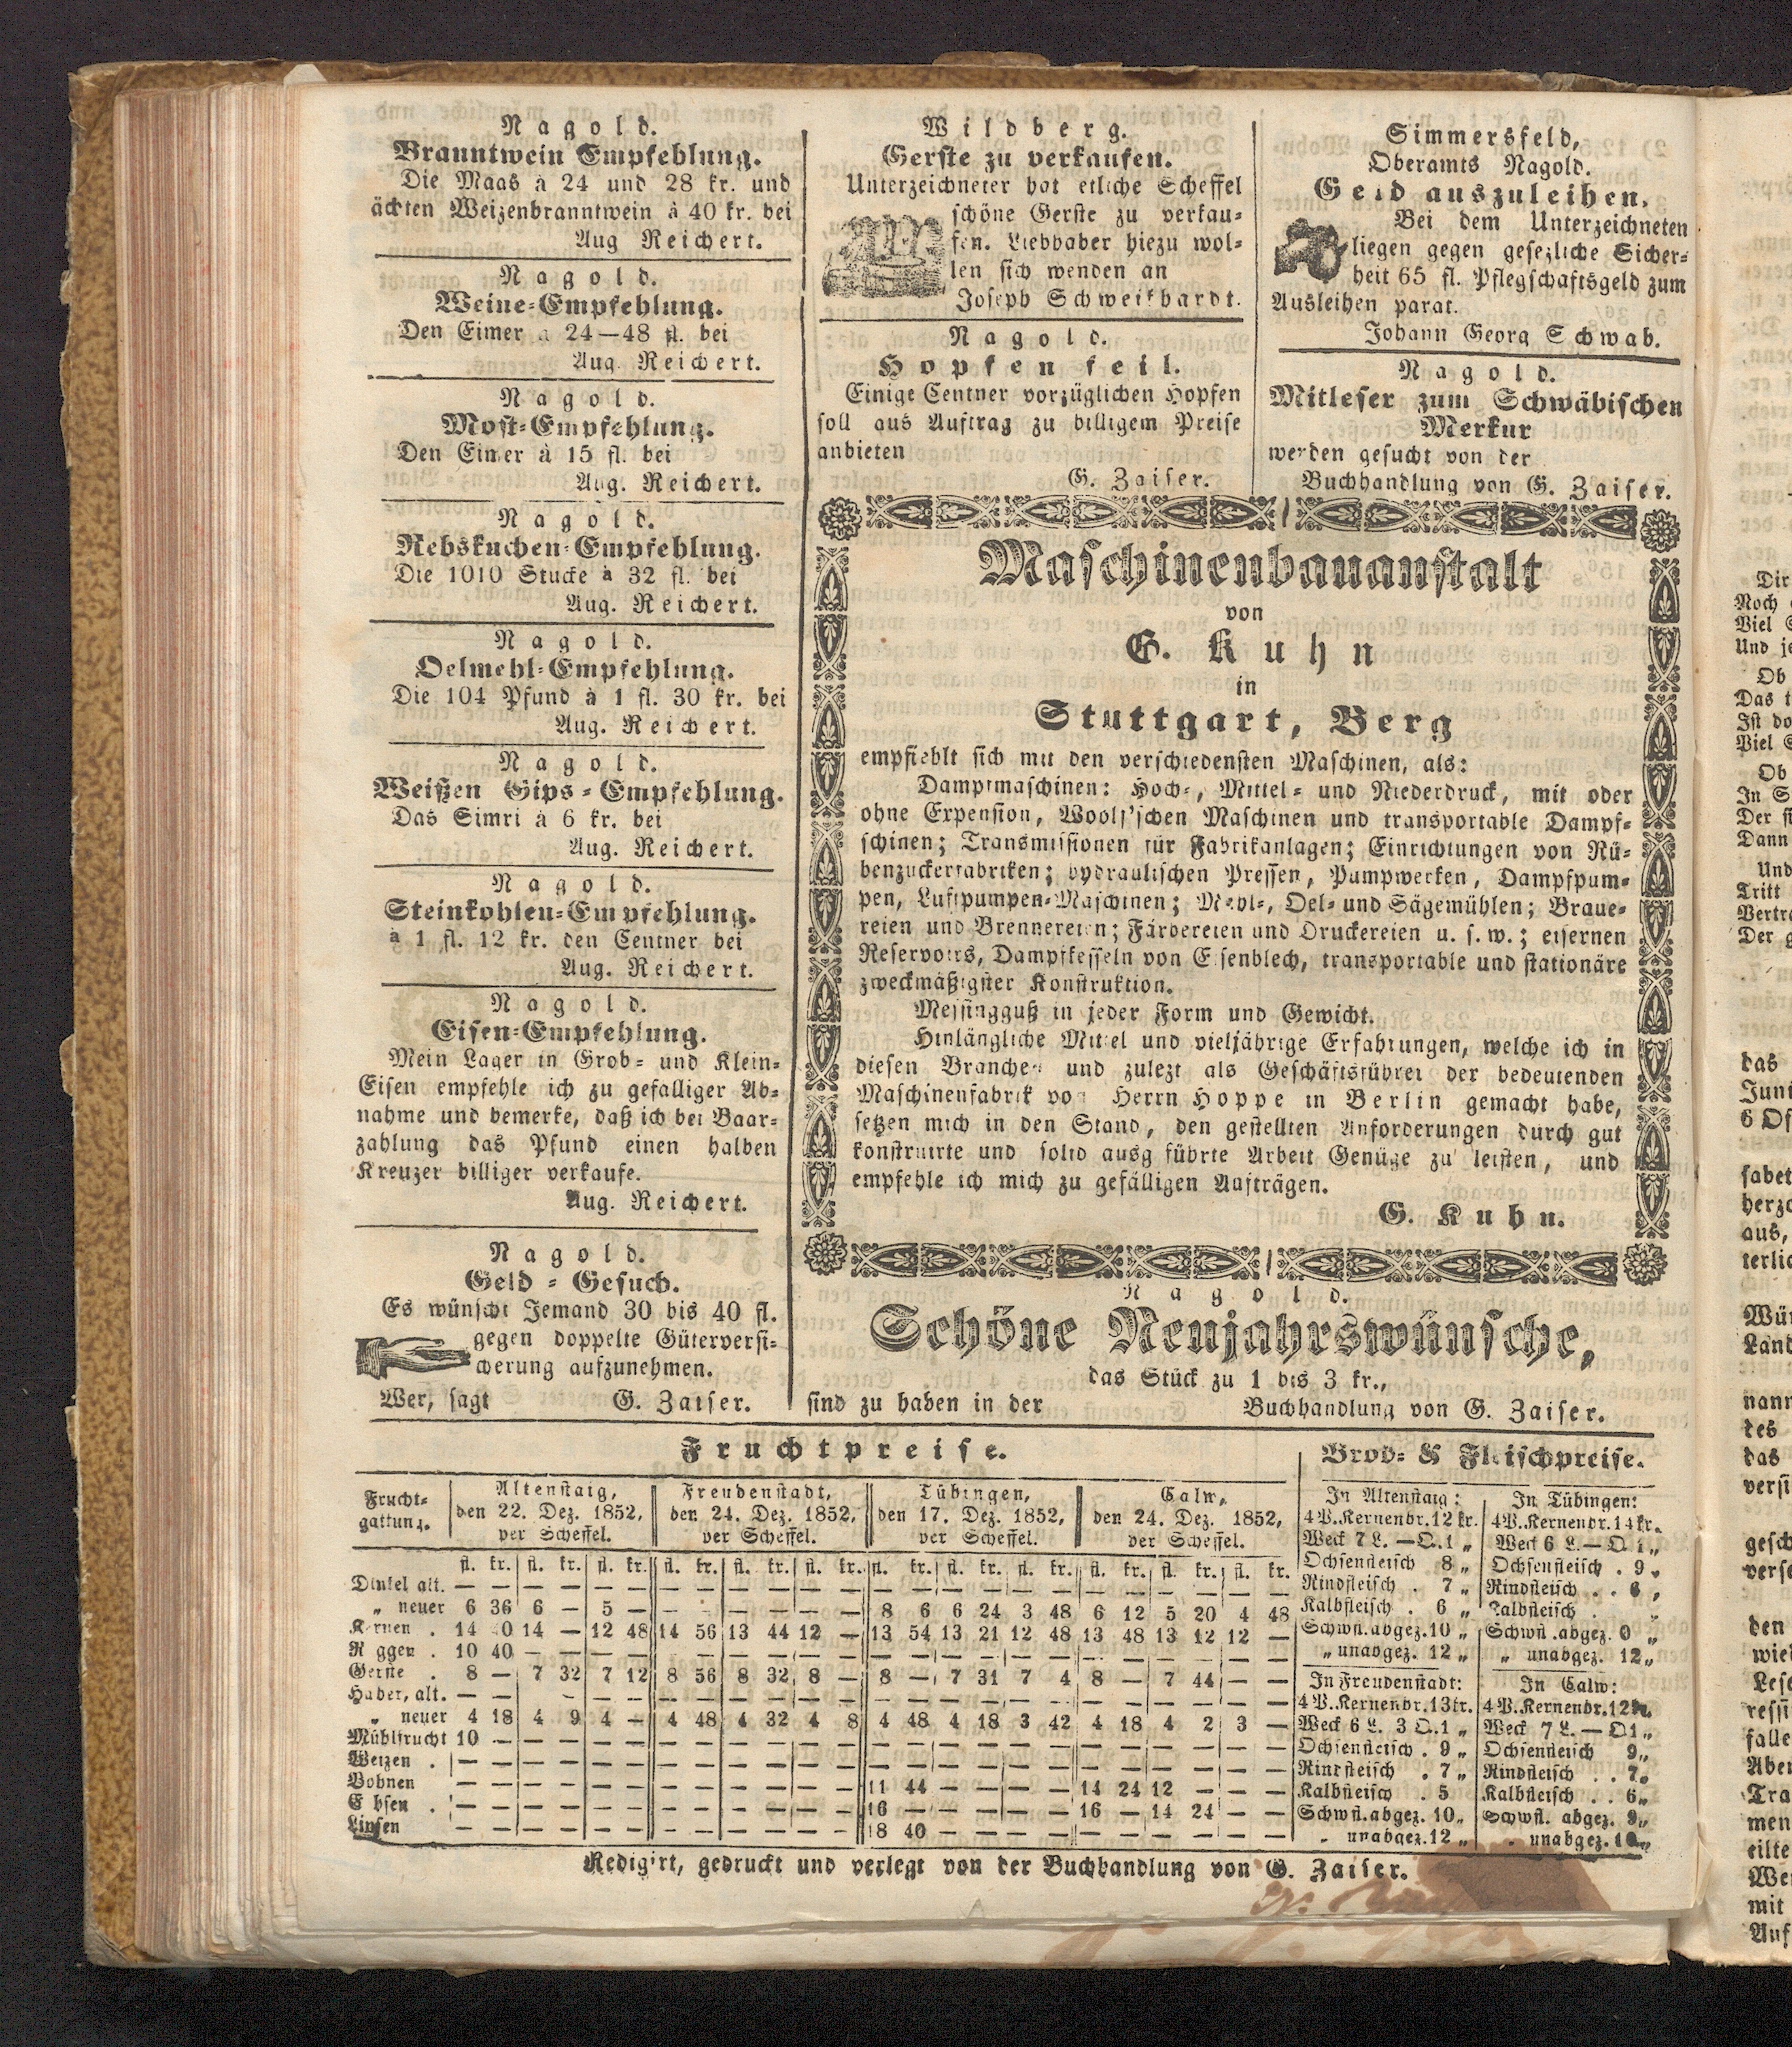 Nagold.
Branntwein Empfehlung.
Die Maas à 24 und 28 kr. und
ächten Weizenbranntwein à 40 kr. bei
Aug Reichert.
Nagold.
Weine-Empfehlung.
Den Eimer à 24—48 fl. bei
Aug. Reichert.
Nagold.
Most-Empfehlung.
Den Eimer à 15 fl. bei
Aug. Reichert.
Nagold.
Rebskuchen-Empfehlung.
Die 1010 Stücke à 32 fl. bei
Aug. Reichert.
Nagold.
Oelmehl-Empfehlung.
Die 104 Pfund à 1 fl. 30 kr. bei
Aug. Reichert.
Nagold.
Weißen Gips-Empfehlung.
Das Simri à 6 kr. bei
Aug. Reichert.
Nagold.
Steinkohlen-Empfehlung.
à 1 fl. 12 kr. den Centner bei
Aug. Reichert.
Nagold.
Eisen-Empfehlung.
Mein Lager in Grob- und Klein-
Eisen empfehle ich zu gefälliger Ab-
nahme und bemerke, daß ich bei Baar-
zahlung das Pfund einen halben
Kreuzer billiger verkaufe.
Aug. Reichert.
Nagold.
Geld-Gesuch.
Es wünscht Jemand 30 bis 40 fl.
gegen doppelte Güterversi-
cherung aufzunehmen.
Wer, sagt G. Zaiser.
Wildberg.
Gerste zu verkaufen.
Unterzeichneter hat etliche Scheffel
schöne Gerste zu verkau-
fen. Liebhaber hiezu wol-
len sich wenden an
Joseph Schweikhardt.
Nagold.
Hopfen feil.
Einige Centner vorzüglichen Hopfen
soll aus Auftrag zu billigem Preise
anbieten
G. Zaiser.
Simmersfeld,
Oberamts Nagold.
Geld auszuleihen.
Bei dem Unterzeichneten
liegen gegen gesezliche Sicher-
heit 65 fl. Pflegschaftsgeld zum
Ausleihen parat.
Johann Georg Schwab.
Nagold.
Mitleser zum Schwäbischen
Merkur
werden gesucht von der
Buchhandlung von G. Zaiser.
Maschinenbauanstalt
von
G. Kuhn
in
Stuttgart, Berg
empfiehlt sich mit den verschiedensten Maschinen, als:
Dampfmaschinen: Hoch-, Mittel- und Niederdruck, mit oder
ohne Expension, Woolf'schen Maschinen und transportable Dampf-
schinen; Transmissionen für Fabrikanlagen; Einrichtungen von Rü-
benzuckerfabriken; hydraulischen Pressen, Pumpwerken, Dampfpum-
pen, Luftpumpen-Maschinen; Mehl-, Oel- und Sägemühlen; Braue-
reien und Brennereien; Färbereien und Druckereien u. s. w.; eisernen
Reservoirs, Dampfkesseln von Eisenblech, transportable und stationäre
zweckmäßigster Konstruktion.
Messingguß in jeder Form und Gewicht.
Hinlängliche Mittel und vieljährige Erfahrungen, welche ich in
diesen Branchen und zulezt als Geschäftsführer der bedeutenden
Maschinenfabrik von Herrn Hoppe in Berlin gemacht habe,
setzen mich in den Stand, den gestellten Anforderungen durch gut
konstruirte und solid ausgeführte Arbeit Genüge zu leisten, und
empfehle ich mich zu gefälligen Aufträgen.
G. Kuhn.
Nagold.
Schöne Neujahrswünsche,
das Stück zu 1 bis 3 kr.,
sind zu haben in der Buchhandlung von G. Zaiser.
Fruchtpreise.
Frucht-gattung. | Altenstaig, den 22. Dez. 1852, per Scheffel. | Freudenstadt, den 24. Dez. 1852, per Scheffel. | Tübingen, den 17. Dez. 1852, per Scheffel. | Calw, den 24. Dez. 1852, per Scheffel.
fl. kr. fl. kr. fl. kr. fl. kr. fl. kr. fl. kr. fl. kr. fl. kr. fl. kr. fl. kr. fl. kr. fl. kr.
Dinkel alt. — — — — — — — — — — — — — — — — — — — — — — — —
„ neuer 6 36 6 — 5 — — — — — — — 8 6 6 24 3 48 6 12 5 20 4 48
Kernen . 14 40 14 — 12 48 14 56 13 44 12 — 13 54 13 21 12 48 13 48 13 12 12 —
Roggen . 10 40 — — — — — — — — — — — — — — — — — — — — — —
Gerste . 8 — 7 32 7 12 8 56 8 32 8 — 8 — 7 31 7 4 8 — 7 44 — —
Haber, alt. — — — — — — — — — — — — — — — — — — — — — — — —
„ neuer 4 18 4 9 4 — 4 48 4 32 4 8 4 48 4 18 3 42 4 18 4 2 3 —
Mühlfrucht 10 — — — — — — — — — — — — — — — — — — — — — — —
Weizen . — — — — — — — — — — — — — — — — — — — — — — — —
Bohnen — — — — — — — — — — — — 11 44 — — — — 14 24 12 — — —
Erbsen . — — — — — — — — — — — — 16 — — — — — 16 — 14 24 — —
Linsen — — — — — — — — — — — — 18 40 — — — — — — — — — —
Brod- & Fleischpreise.
In Altenstaig:
4 P. Kernenbr. 12 kr.
Weck 7 L. — Q. 1 „
Ochsenfleisch 8 „
Rindfleisch . 7 „
Kalbfleisch . 6 „
Schwfl. abgez. 10 „
„ unabgez. 12 „
In Tübingen:
4 P. Kernenbr. 14 kr.
Weck 6 L. — Q 1 „
Ochsenfleisch . 9 „
Rindfleisch . . 6 „
Kalbfleisch . „
Schwfl. abgez. 0 „
„ unabgez. 12 „
In Freudenstadt:
4 P. Kernenbr. 13 kr.
Weck 6 L. 3 Q. 1 „
Ochsenfleisch . 9 „
Rindfleisch . 7 „
Kalbfleisch . 5
Schwfl. abgez. 10 „
„ unabgez. 12 „
In Calw:
4 P. Kernenbr. 12 kr.
Weck 7 L. — Q 1 „
Ochsenfleisch 9 „
Rindfleisch . . 7 „
Kalbfleisch . . 6 „
Schwfl. abgez. 9 „
„ unabgez. 10 „
Redigirt, gedruckt und verlegt von der Buchhandlung von G. Zaiser.
Dir
Noch
Viel
Und
Ob
Das
Ist
Viel
Ob
In
Der
Dann
Und
Tritt
Vertra
Der
das
Juni
6
sabet
herzo
aus,
terlic
Wür
Land
nann
des
das
versi
gesch
verse
den
wied
Lese
ressi
falle
Aben
Tra
men
eilte
We
mit
Auf